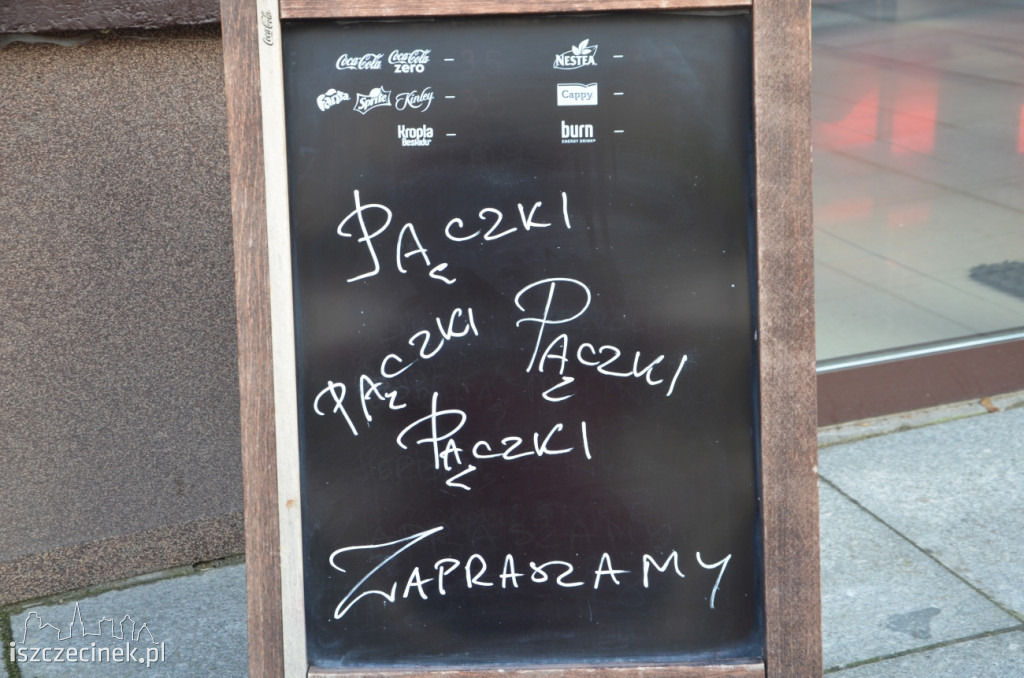 Coca-Cola
Coca-Cola Coca-Cola zero – NESTEA –
Fanta Sprite Kinley – Cappy –
Kropla Beskidu – burn ENERGY DRINK –
PĄCZKI
PĄCZKI
PĄCZKI
PĄCZKI
ZAPRASZAMY
iszczecinek.pl